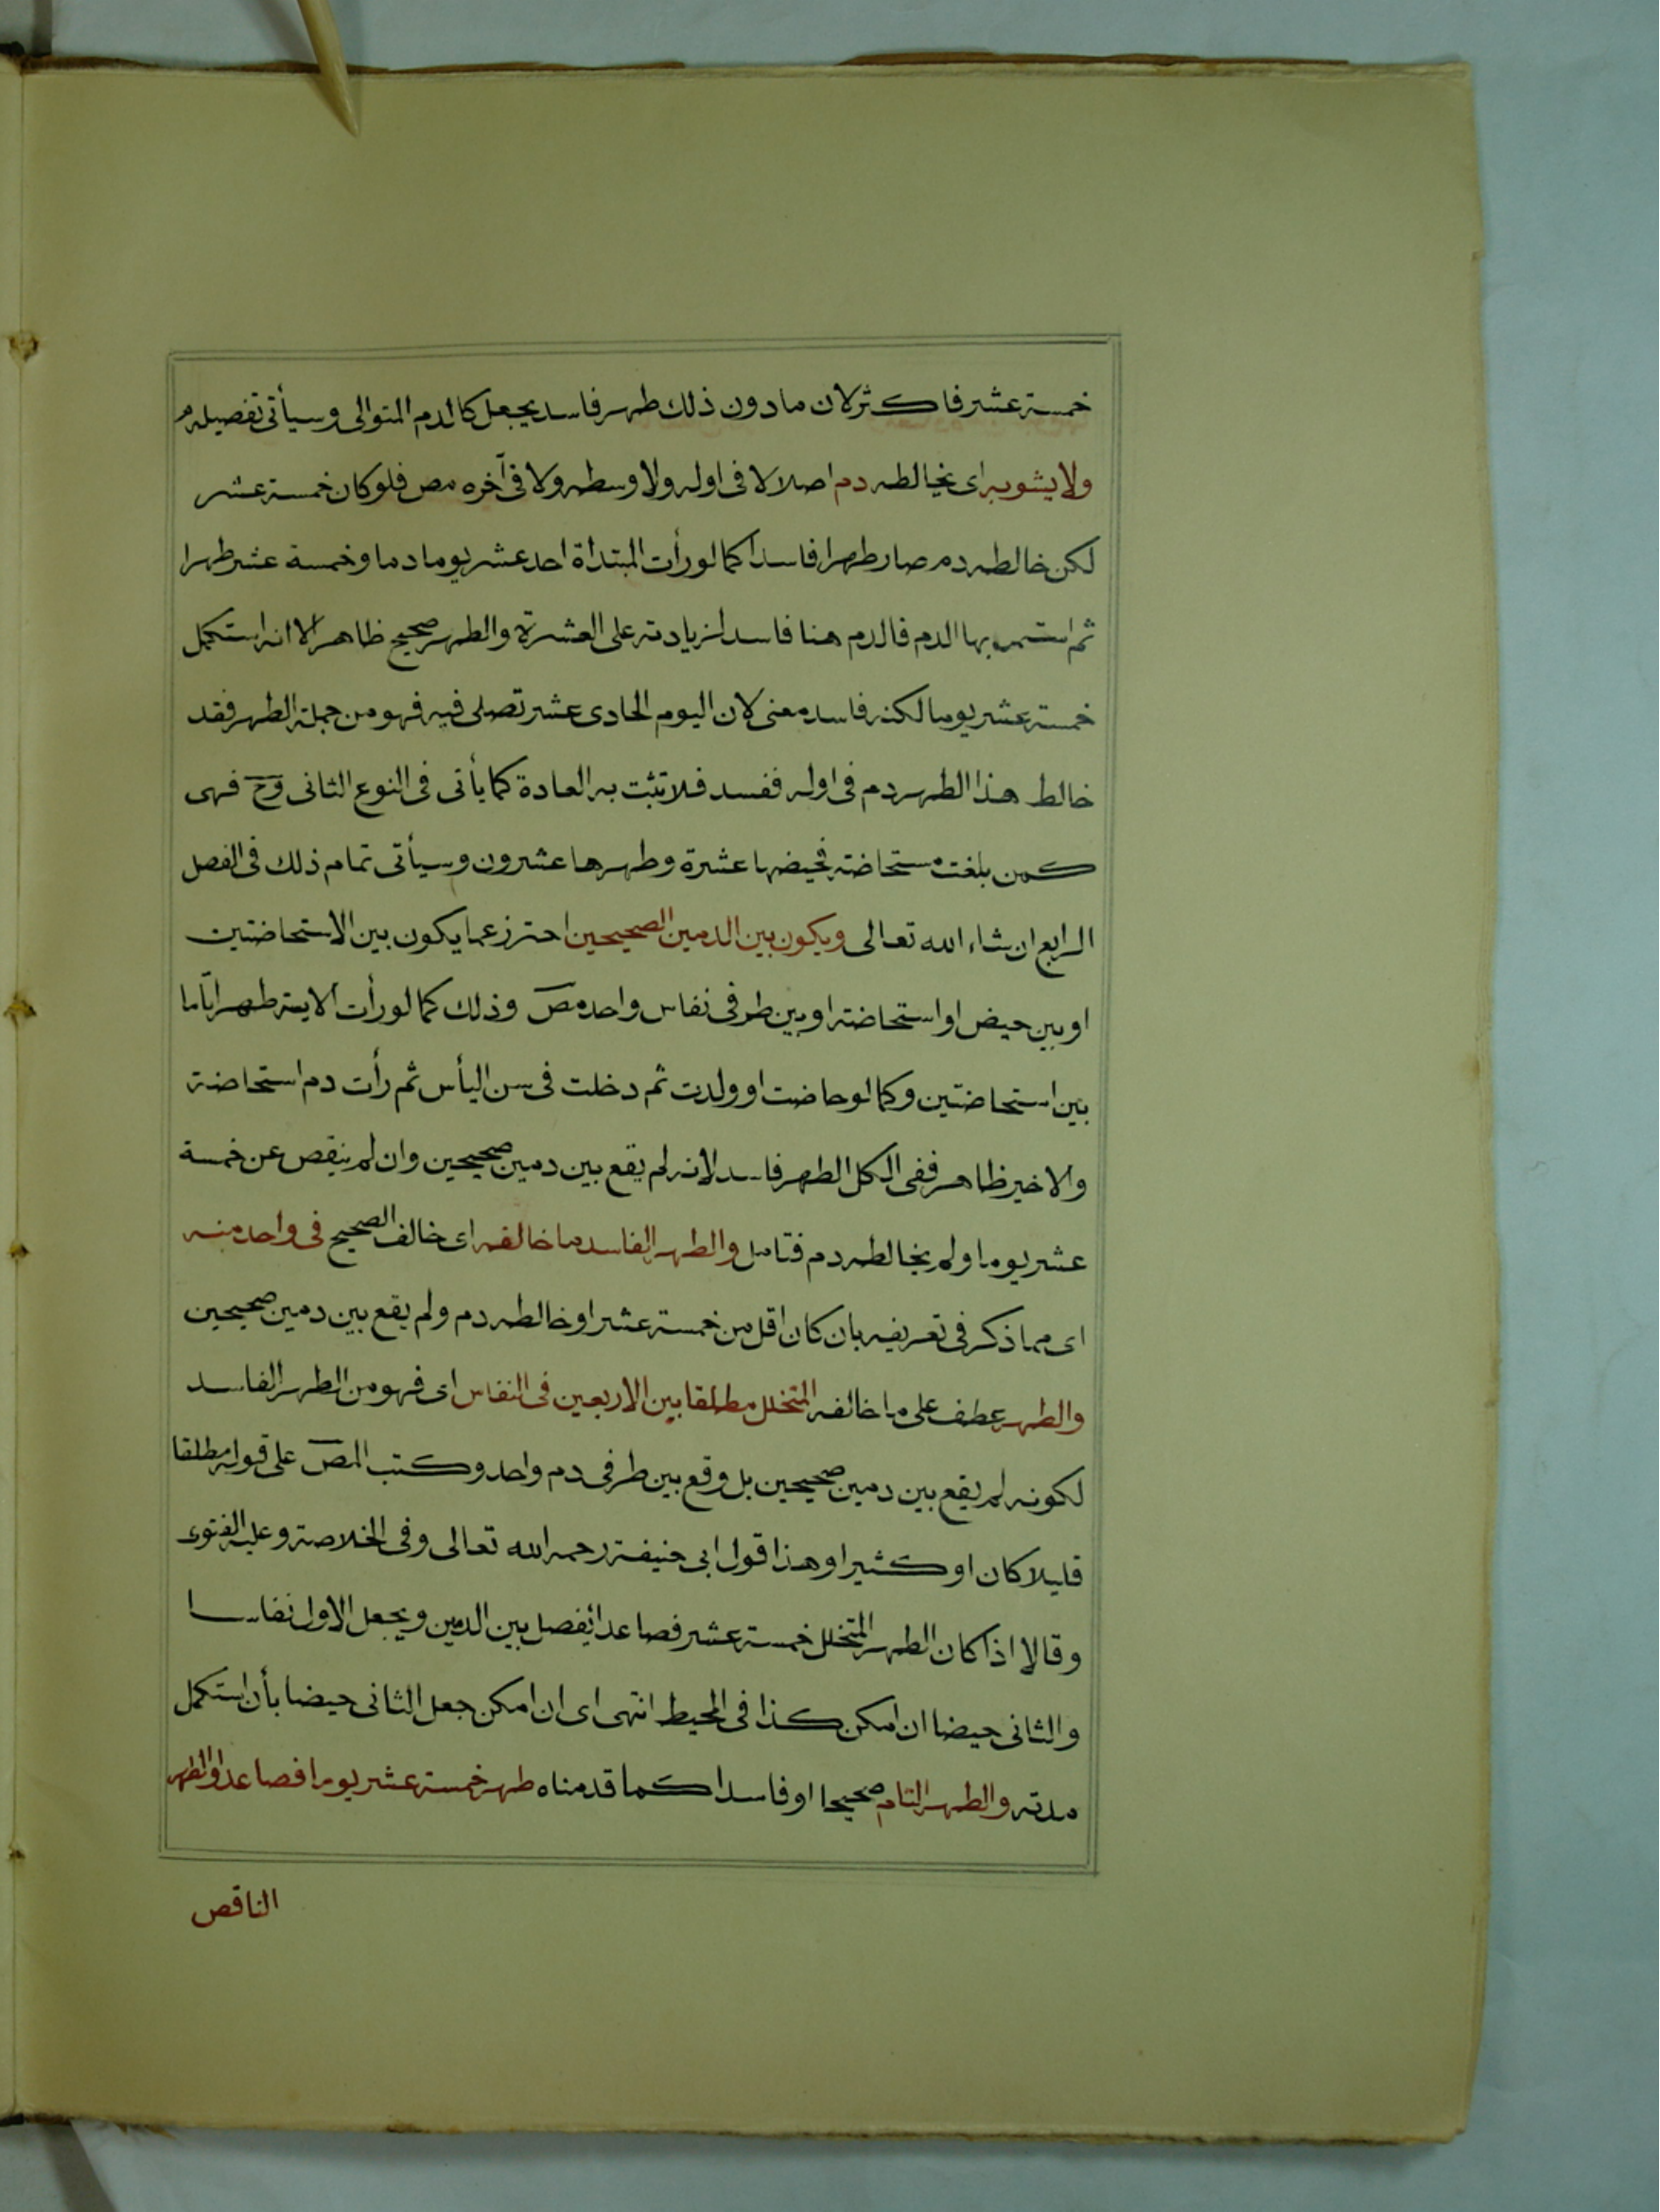 خمسة عشر فاكثر لان ما دون ذلك طهر فاسد يجعل كالدم المتوالى وسيأتى تفصيله م
ولا يشوبه اى يخالطه دم اصلا لا فى اوله ولا وسطه ولا فى آخره مص فلو كان خمسة عشر
لكن خالطه دم صار طهرا فاسدا كما لو رأت المبتدأة احد عشر يوما دما وخمسة عشر طهرا
ثم استمر بها الدم فالدم هنا فاسد لزيادته على العشرة والطهر صحيح ظاهرا لانه استكمل
خمسة عشر يوما لكنه فاسد معنى لان اليوم الحادى عشر تصلى فيه فهو من جملة الطهر فقد
خالط هذا الطهر دم فى اوله ففسد فلا تثبت به العادة كما يأتى فى النوع الثانى وح فهى
كمن بلغت مستحاضة فحيضها عشرة وطهرها عشرون وسيأتى تمام ذلك فى الفصل
الرابع ان شاء الله تعالى ويكون بين الدمين الصحيحين احترز عما يكون بين الاستحاضتين
او بين حيض او استحاضة او بين طرفى نفاس واحد مص وذلك كما لو رأت الايسة طهرا تاما
بين استحاضتين وكما لو حاضت او ولدت ثم دخلت فى سن اليأس ثم رأت دم استحاضة
والاخير ظاهر ففى الكل الطهر فاسد لانه لم يقع بين دمين صحيحين وان لم ينقص عن خمسة
عشر يوما ولم يخالطه دم فتامل والطهر الفاسد ما خالفه اى خالف الصحيح فى واحد منه
اى مما ذكر فى تعريفه بان كان اقل من خمسة عشر او خالطه دم ولم يقع بين دمين صحيحين
والطهر عطف على ما خالفه المتخلل مطلقا بين الاربعين فى النفاس اى فهو من الطهر الفاسد
لكونه لم يقع بين دمين صحيحين بل وقع بين طرفى دم واحد وكتب المص على قوله مطلقا
قليلا كان او كثيرا وهذا قول ابى حنيفة رحمه الله تعالى وفى الخلاصة وعليه الفتوى
وقالا اذا كان الطهر المتخلل خمسة عشر فصاعدا يفصل بين الدمين ويجعل الاول نفاسا
والثانى حيضا ان امكن كذا فى المحيط انتهى اى ان امكن جعل الثانى حيضا بأن استكمل
مدته والطهر التام صحيحا او فاسدا كما قدمناه طهر خمسة عشر يوما فصاعدا والطهر
الناقص